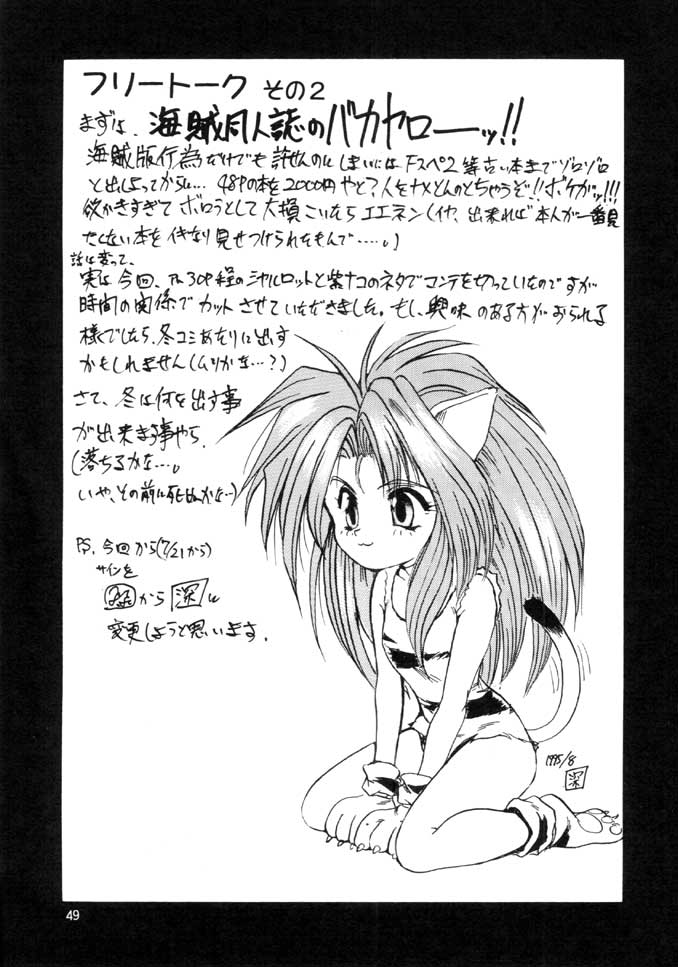 フリートーク その2
まずは、海賊同人誌のバカヤローーッ!!
海賊版行為だけでも許せんのに しまいにはFスペ2等古い本までゾロゾロ
と出しよってからに… 48Pの本を2000円やと?人をナメとんのとちゃうぞ!!ボケがッ!!!
欲かきすぎて ボロうとして大損こいたらエエネン(イヤ、出来れば本人が一番見
たくない本をイキなり見せつけられたもんで……。)
話は変って、
実は今回、30P程のシャルロットと紫ナコのネタでコンテを切っていたのですが
時間の関係でカットさせていただきました。もし、興味のある方がおられる
様でしたら、冬コミあたりに出す
かもしれません(ムリかな…?)
さて、冬は何を出す事
が出来ます事やら、
(落ちるかな…。
いや、その前に死ぬかな…)
PS. 今回から(7/21から)
サインを
から 深 に
変更しようと思います。
1995/8
深
49